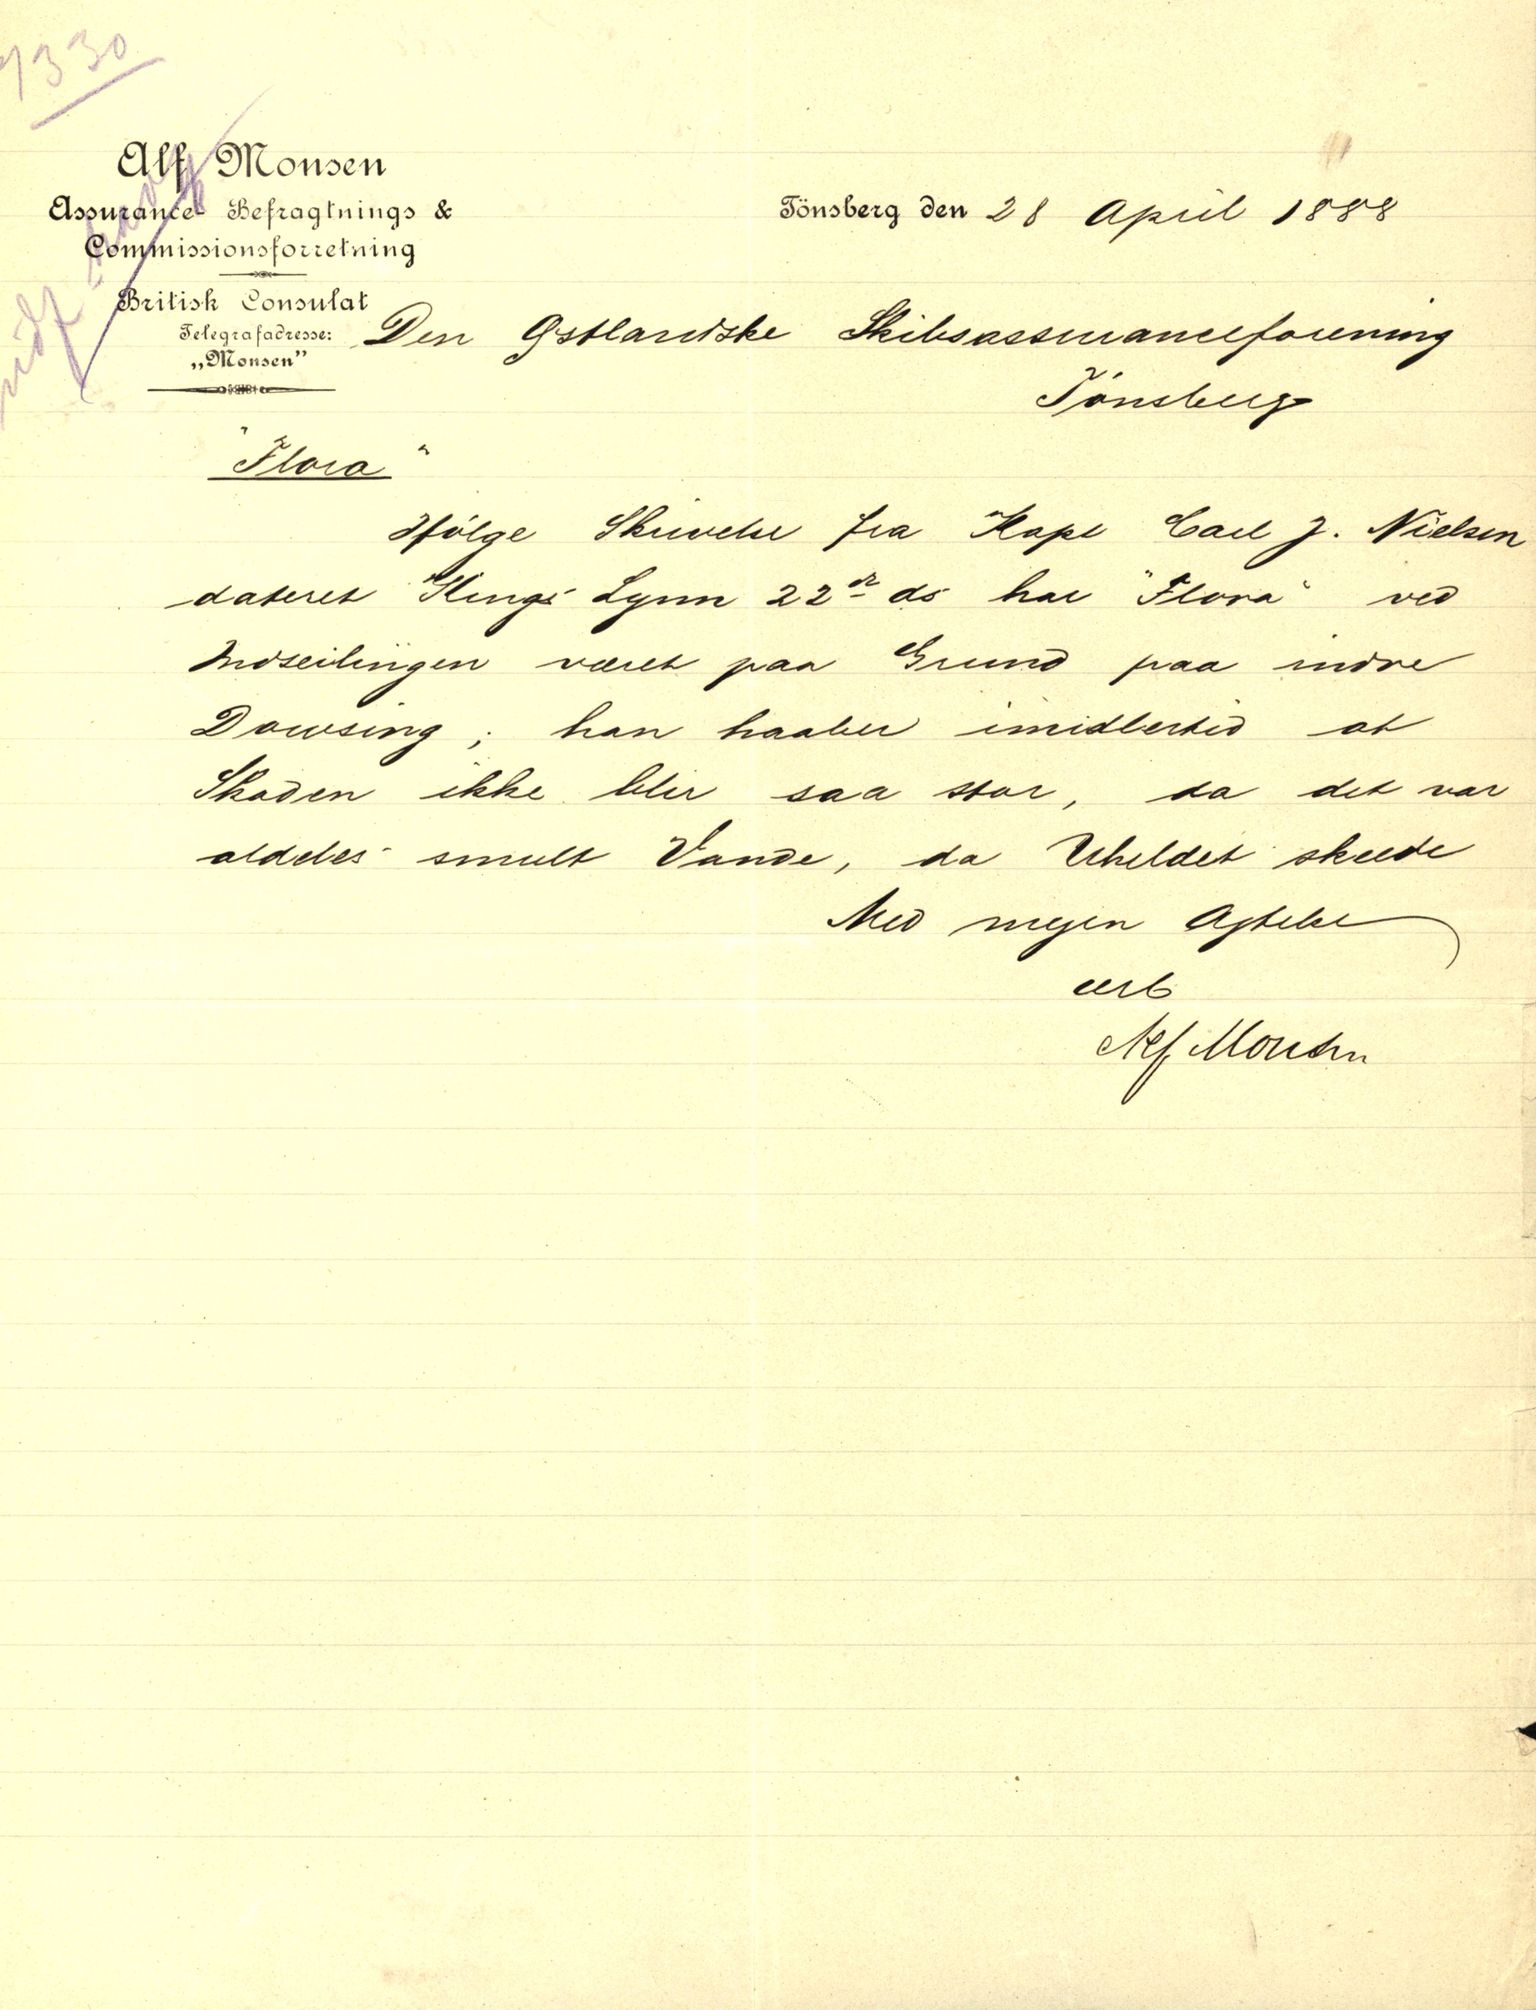 330
Alf Monsen
Assurance- Befragtnings &
Commissionsforretning
British Consulat
Telegrafadresse:
„Monsen”
Tönsberg den 28 April 1888
Den Østlandske Skibsassuranceforening
Tönsberg
"Flora"
Ifölge Skrivelse fra Kapt Carl J. Nielsen
dateret Kings Lynn 22de ds har "Flora" ved
Indseilingen været paa Grund paa indre
Dowsing; han haaber imidlertid at
Skaden ikke blir saa stor, da det var
aldeles smult Vande, da Uheldet skeede
Med megen Agtelse
ærb
Alf Monsen